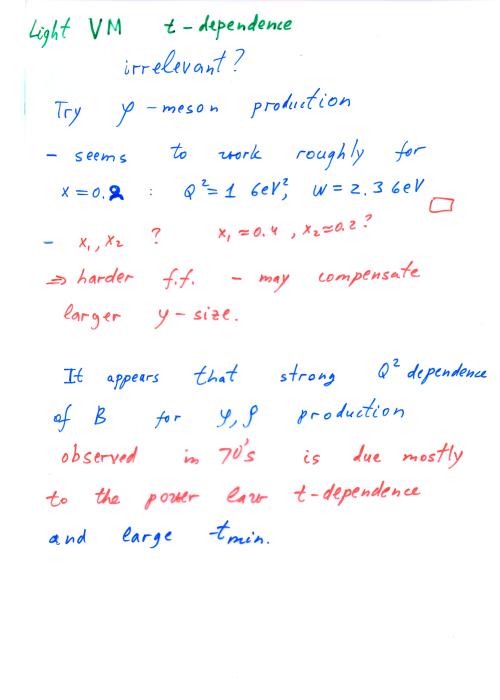 Light VM t-dependence
irrelevant?
Try φ-meson production
- seems to work roughly for
x=0.2 : Q²=1 GeV², W=2.3 GeV
- x₁,x₂ ? x₁≈0.4, x₂≈0.2?
⇒ harder f.f. - may compensate
larger φ-size.
It appears that strong Q² dependence
of B for φ,ρ production
observed in 70's is due mostly
to the power law t-dependence
and large tmin.